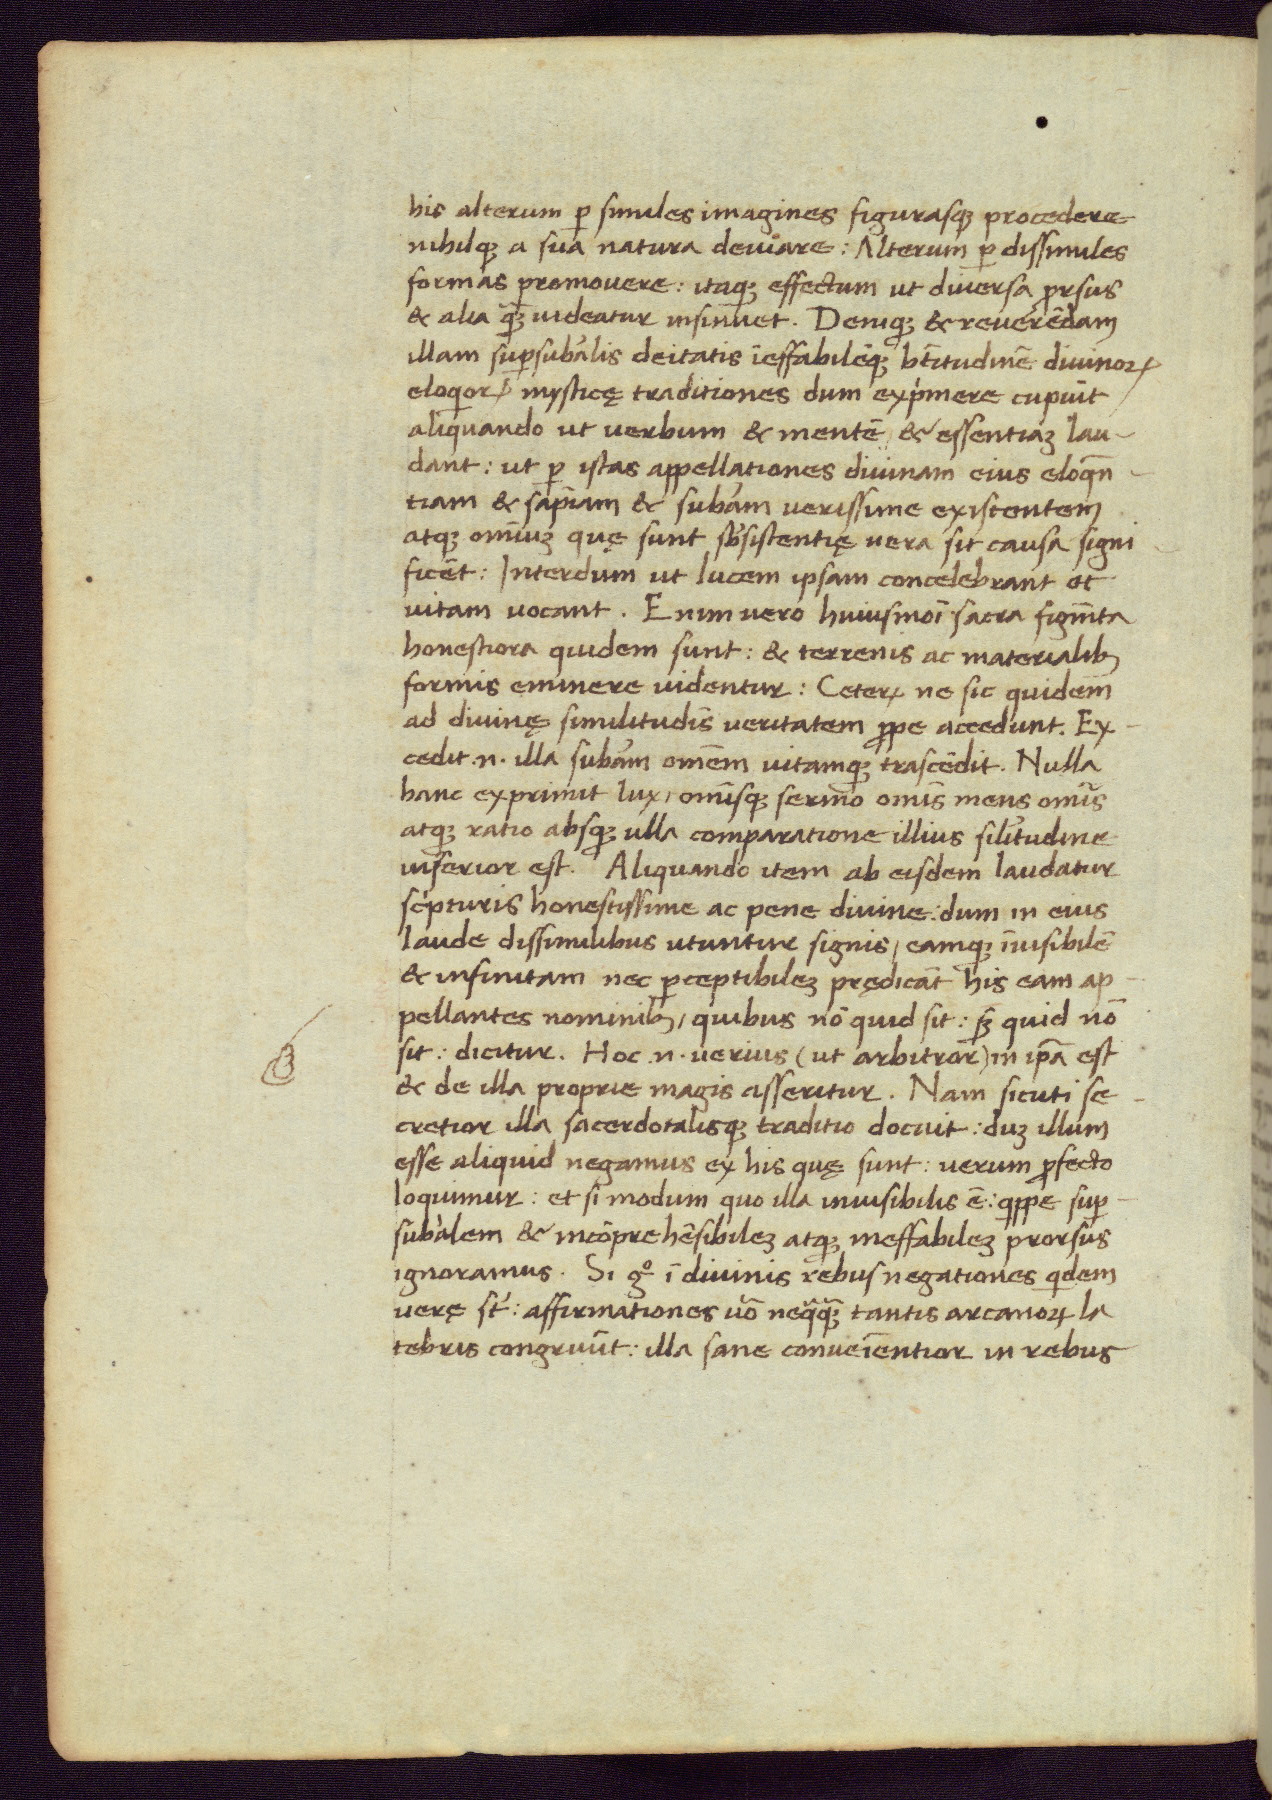 his alterum ꝑ similes imagines figurasqꝫ procedere
nihilqꝫ a sua natura deuiare: Alterum ꝑ dissimiles
formas promouere: itaqꝫ effectum ut diuersa ꝓrsus
& alia qꝫ̃ uideatur insinuet. Deniqꝫ & reuerēdam
illam suꝑsub̃alis deitatis īeffabilēqꝫ bt̄itudinē diuinoꝝ
eloqioꝝ mysticę traditiones dum exp̀imere cupiūt
aliquando ut uerbum & mentē & essentiaꝫ lau-
dant: ut ꝑ istas appellationes diuinam eius eloqn̄-
tiam & sap̄iam & sub̃am uerissime existentem
atqꝫ omīuꝫ quę sunt sb̃sistentię uera sit causa signi-
ficēt: Interdum ut lucem ipsam concelebrant et
uitam uocant. Enim uero huiusmōi sacra figm̄ta
honestiora quidem sunt: & terrenis ac materialibꝫ
formis eminere uidentur: Ceteꝝ ne sic quidem
ad diuinę similitudīs ueritatem ꝓpe accedunt. Ex-
cedit .n. illa sub̃am om̄em uitamqꝫ trascēdit. Nulla
hanc exprimit lux, omīsqꝫ sermo omīs mens omīs
atqꝫ ratio absqꝫ ulla comparatione illius sil̃itudine
inferior est. Aliquando item ab eisdem laudatur
sc̀ipturis honestissime ac pene diuine: dum in eius
laude dissimilibus utuntur signis, eamqꝫ īuisibilē
& infinitam nec ꝑceptibileꝫ prędicāt his eam ap-
pellantes nominibꝫ, quibus nō quid sit: sꝫ quid nō
sit: dicitur. Hoc .n. uerius (ut arbitror) in ip̄a est
& de illa proprie magis asseritur. Nam sicuti se-
cretior illa sacerdotalisqꝫ traditio docuit: duꝫ illum
esse aliquid negamus ex his quę sunt: uerum ꝓfecto
loquimur: et si modum quo illa inuisibilis ē: qippe suꝑ-
sub̃alem & incōprehēsibileꝫ atqꝫ ineffabileꝫ prorsus
ignoramus. Si gͦ ī diuinis rebus negationes qidem
uerę st̃: affirmationes uō neqqꝫ̃ tantis arcanoꝝ la
tebris congruūt: illa sane conueīentior in rebus